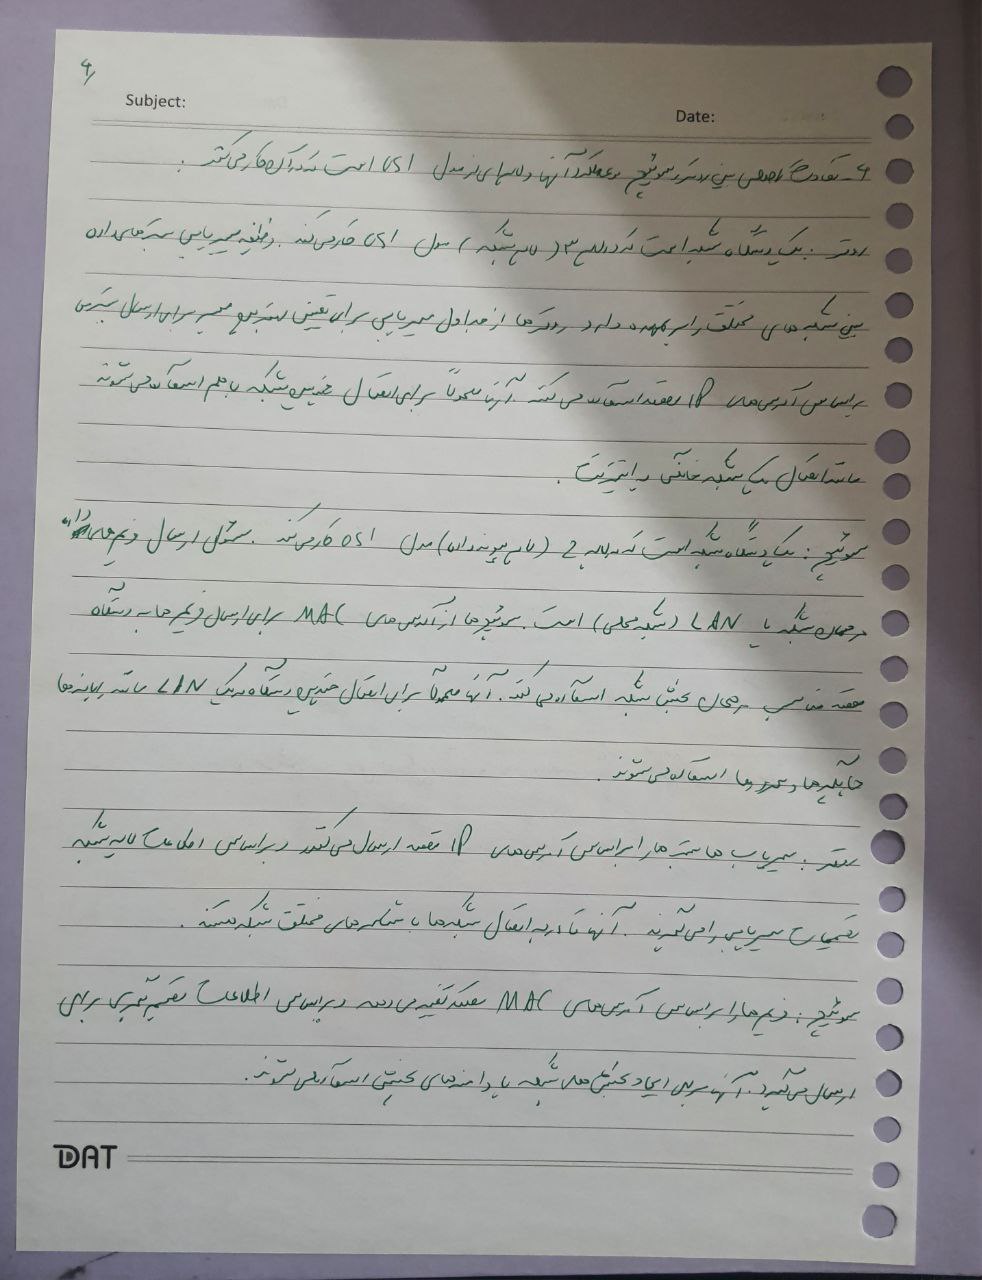 ۹/
Subject:
Date:
۹ـ تفاوت اصلی بین روتر و سوئیچ در عملکرد آنها و لایه‌ای از مدل OSI است که در آن کار می‌کنند.
روتر: یک دستگاه شبکه است که در لایه ۳ (لایه شبکه) مدل OSI کار می‌کند. وظیفه مسیریابی بسته‌های داده
بین شبکه‌های مختلف را بر عهده دارد روترها از جداول مسیریابی برای تعیین بهترین مسیر برای ارسال بسته‌ها
بر اساس آدرس‌های IP مقصد استفاده می‌کنند آنها معمولاً برای اتصال چندین شبکه با هم استفاده می‌شوند
مانند اتصال یک شبکه خانگی به اینترنت.
سوئیچ: یک دستگاه شبکه است که در لایه 2 (لایه پیوند داده) مدل OSI کار می‌کند. مسئول ارسال فریم‌های داده
در همان شبکه یا LAN (شبکه محلی) است. سوئیچ‌ها از آدرس‌های MAC برای ارسال فریم‌ها به دستگاه
مقصد مناسب در همان بخش شبکه استفاده می‌کنند. آنها معمولاً برای اتصال چندین دستگاه در یک LAN مانند رایانه‌ها
چاپگرها و سرورها استفاده می‌شوند.
روتر: مسیریاب‌ها بسته‌ها را بر اساس آدرس‌های IP مقصد ارسال می‌کنند و بر اساس اطلاعات لایه شبکه
تصمیمات مسیریابی را می‌گیرند. آنها قادر به اتصال شبکه‌ها با شبکه‌های مختلف شبکه هستند.
سوئیچ: فریم‌ها را بر اساس آدرس‌های MAC مقصد تغییر می‌دهد و بر اساس اطلاعات تصمیم‌گیری برای
ارسال می‌گیرد. آنها برای ایجاد بخش‌های شبکه یا دامنه‌های پخش استفاده می‌شوند.
DAT